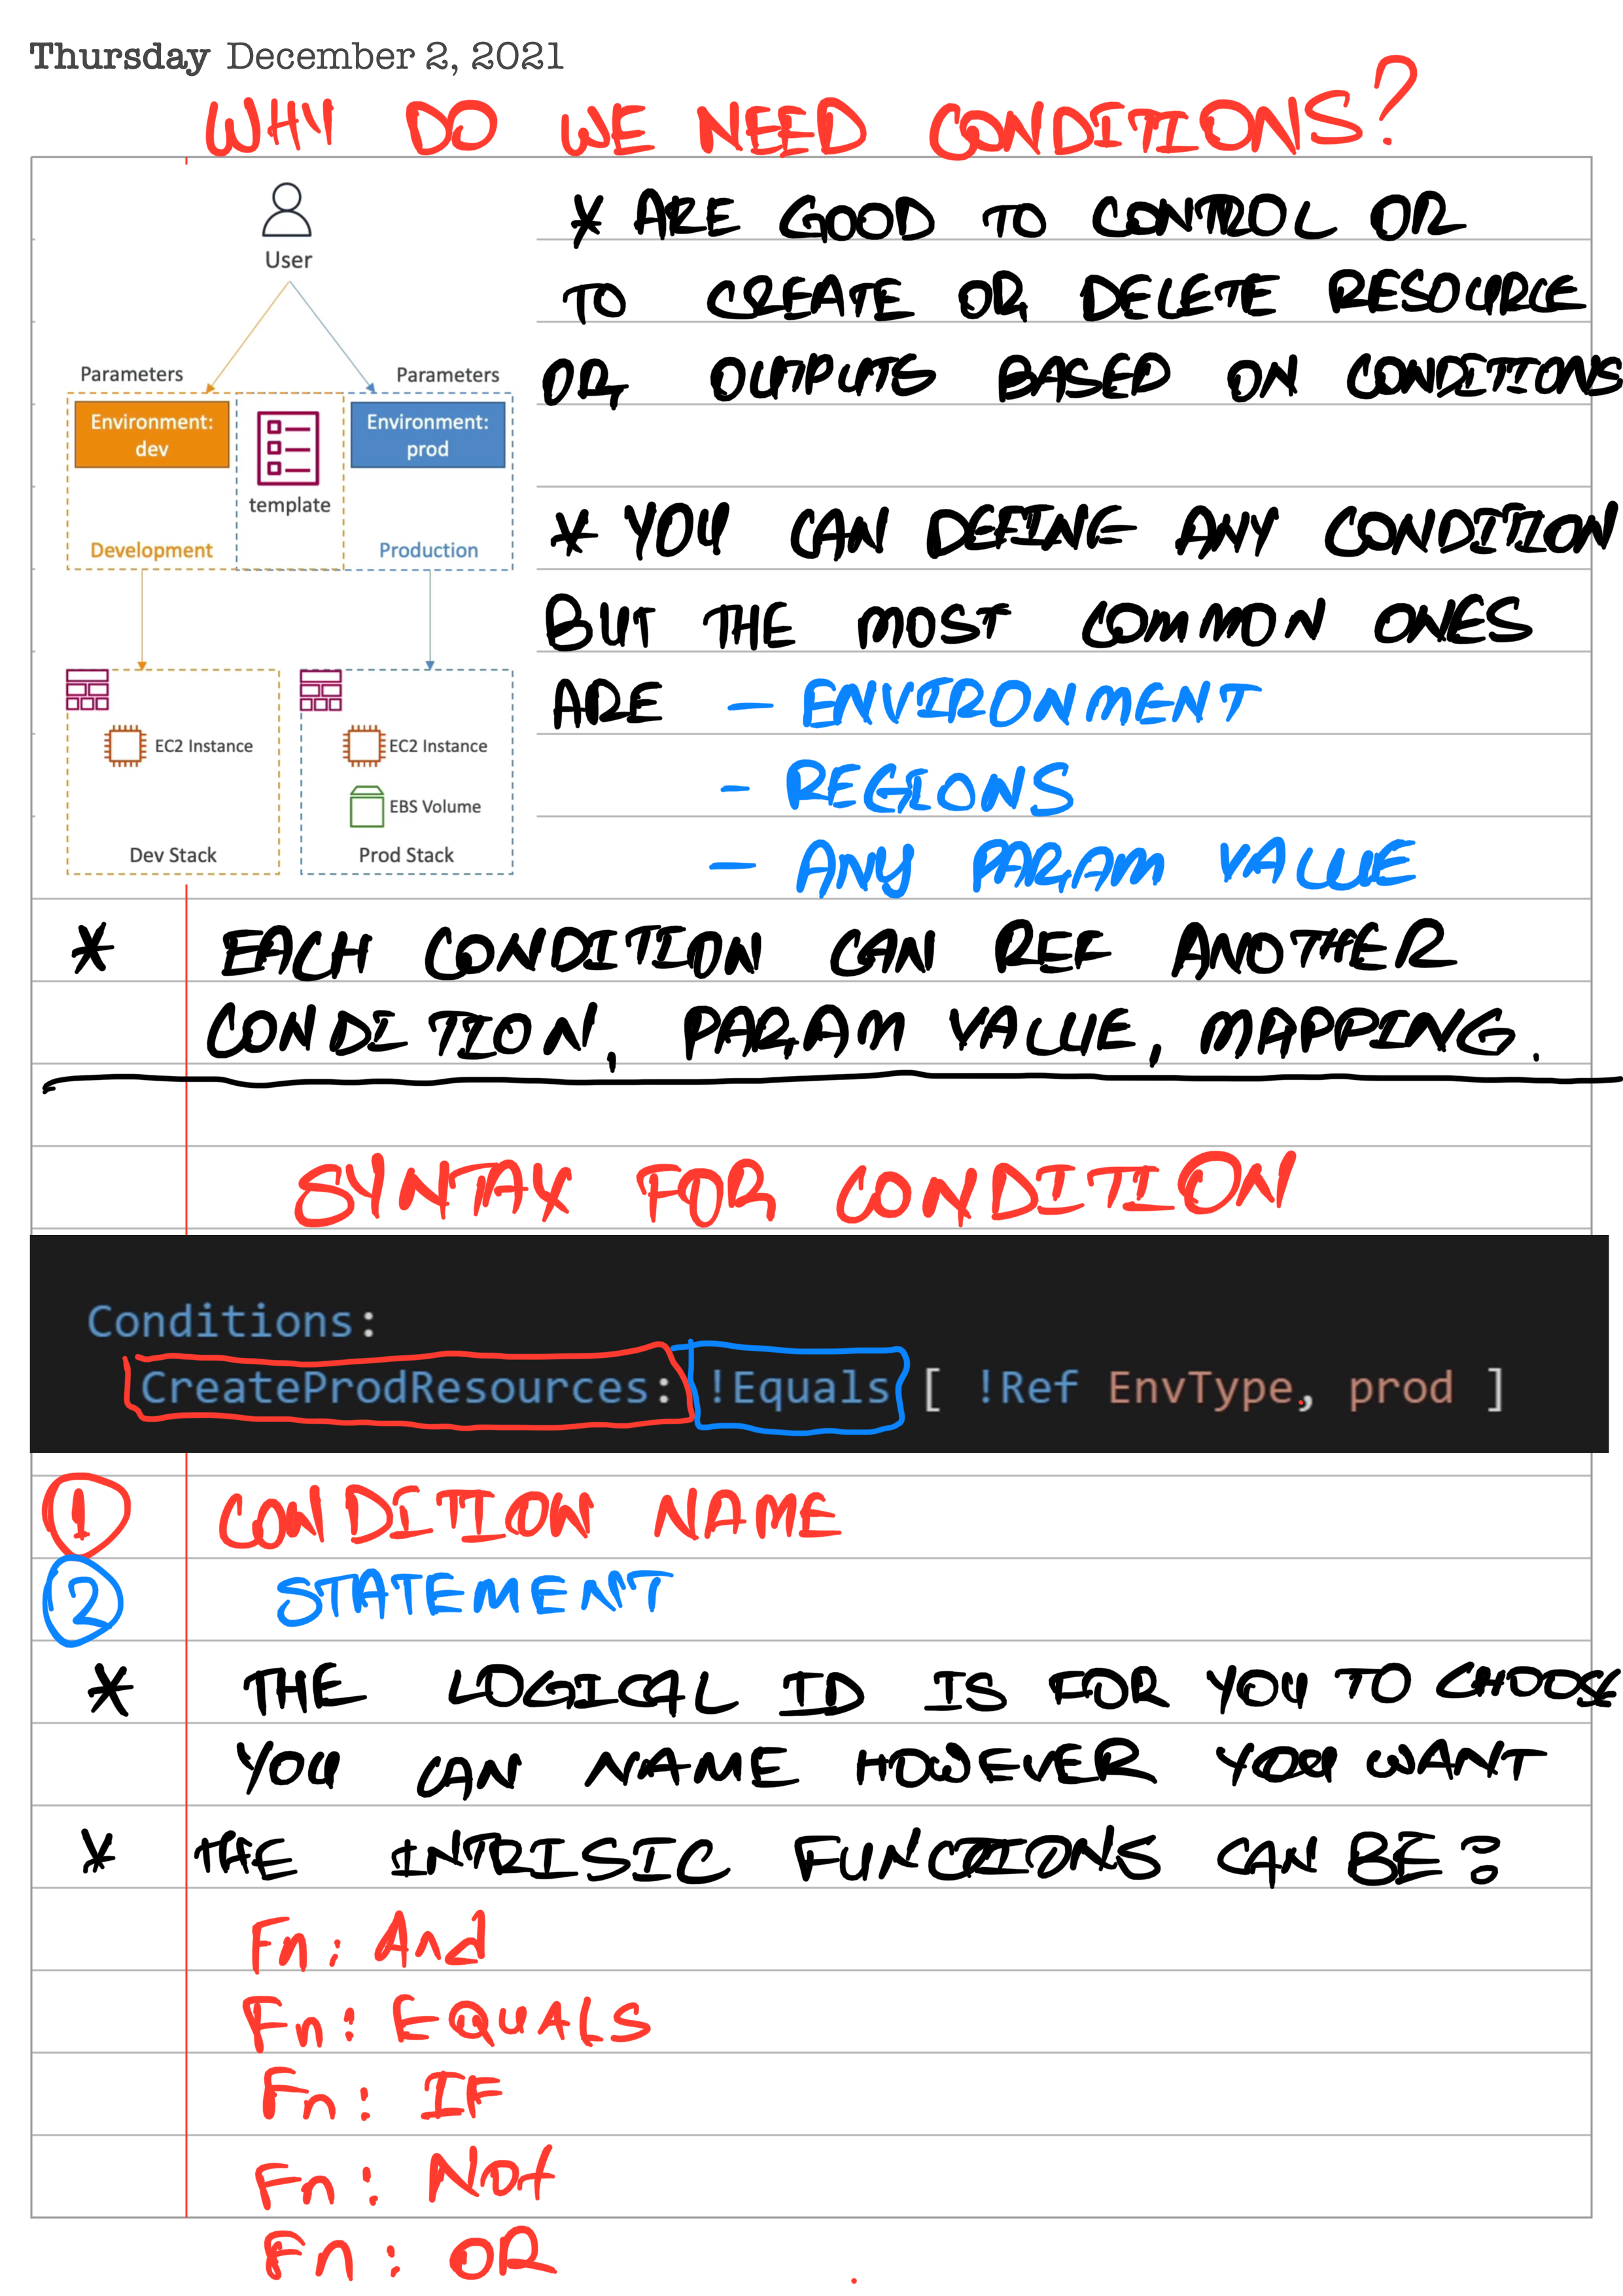 Thursday December 2, 2021
WHY DO WE NEED CONDITIONS?
User
Parameters
Parameters
Environment:
dev
Environment:
prod
template
Development
Production
EC2 Instance
EC2 Instance
EBS Volume
Dev Stack
Prod Stack
* ARE GOOD TO CONTROL OR
TO CREATE OR DELETE RESOURCE
OR OUTPUTS BASED ON CONDITIONS
* YOU CAN DEFINE ANY CONDITION
BUT THE MOST COMMON ONES
ARE - ENVIRONMENT
- REGIONS
- ANY PARAM VALUE
* EACH CONDITION CAN REF ANOTHER
CONDITION, PARAM VALUE, MAPPING.
SYNTAX FOR CONDITION
Conditions:
CreateProdResources: !Equals [ !Ref EnvType, prod ]
1 CONDITION NAME
2 STATEMENT
* THE LOGICAL ID IS FOR YOU TO CHOOSE
YOU CAN NAME HOWEVER YOU WANT
* THE INTRISIC FUNCTIONS CAN BE:
Fn: And
Fn: EQUALS
Fn: IF
Fn: Not
Fn: OR